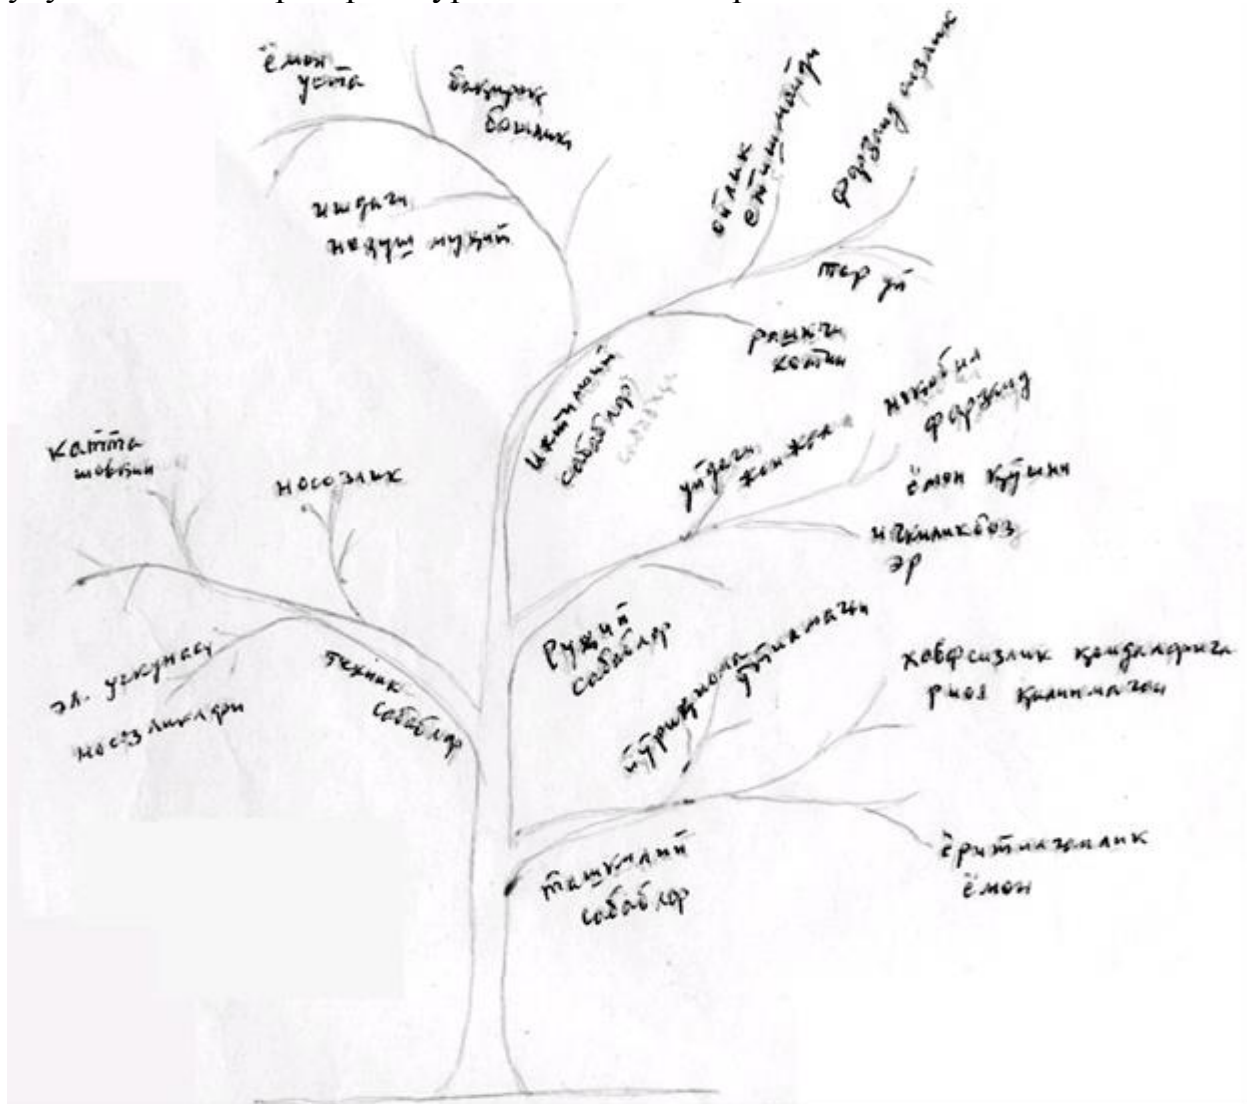 ёмон
уста
бақироқ
бошлиқ
ишдаги
нохуш муҳит
ойлик
етишмайди
фарзандсизлик
тор уй
рашкчи
хотин
ижтимоий
сабаблар
уйдаги
жанжал
ноқобил
фарзанд
ёмон қўшни
ичкиликбоз
эр
руҳий
сабаблар
катта
шовқин
носозлик
эл. ускунаси
носозликлари
техник
сабаблар
йўриқнома
ўтилмаган
хавфсизлик қоидаларига
риоя қилинмаган
ёритилганлик
ёмон
ташкилий
сабаблар